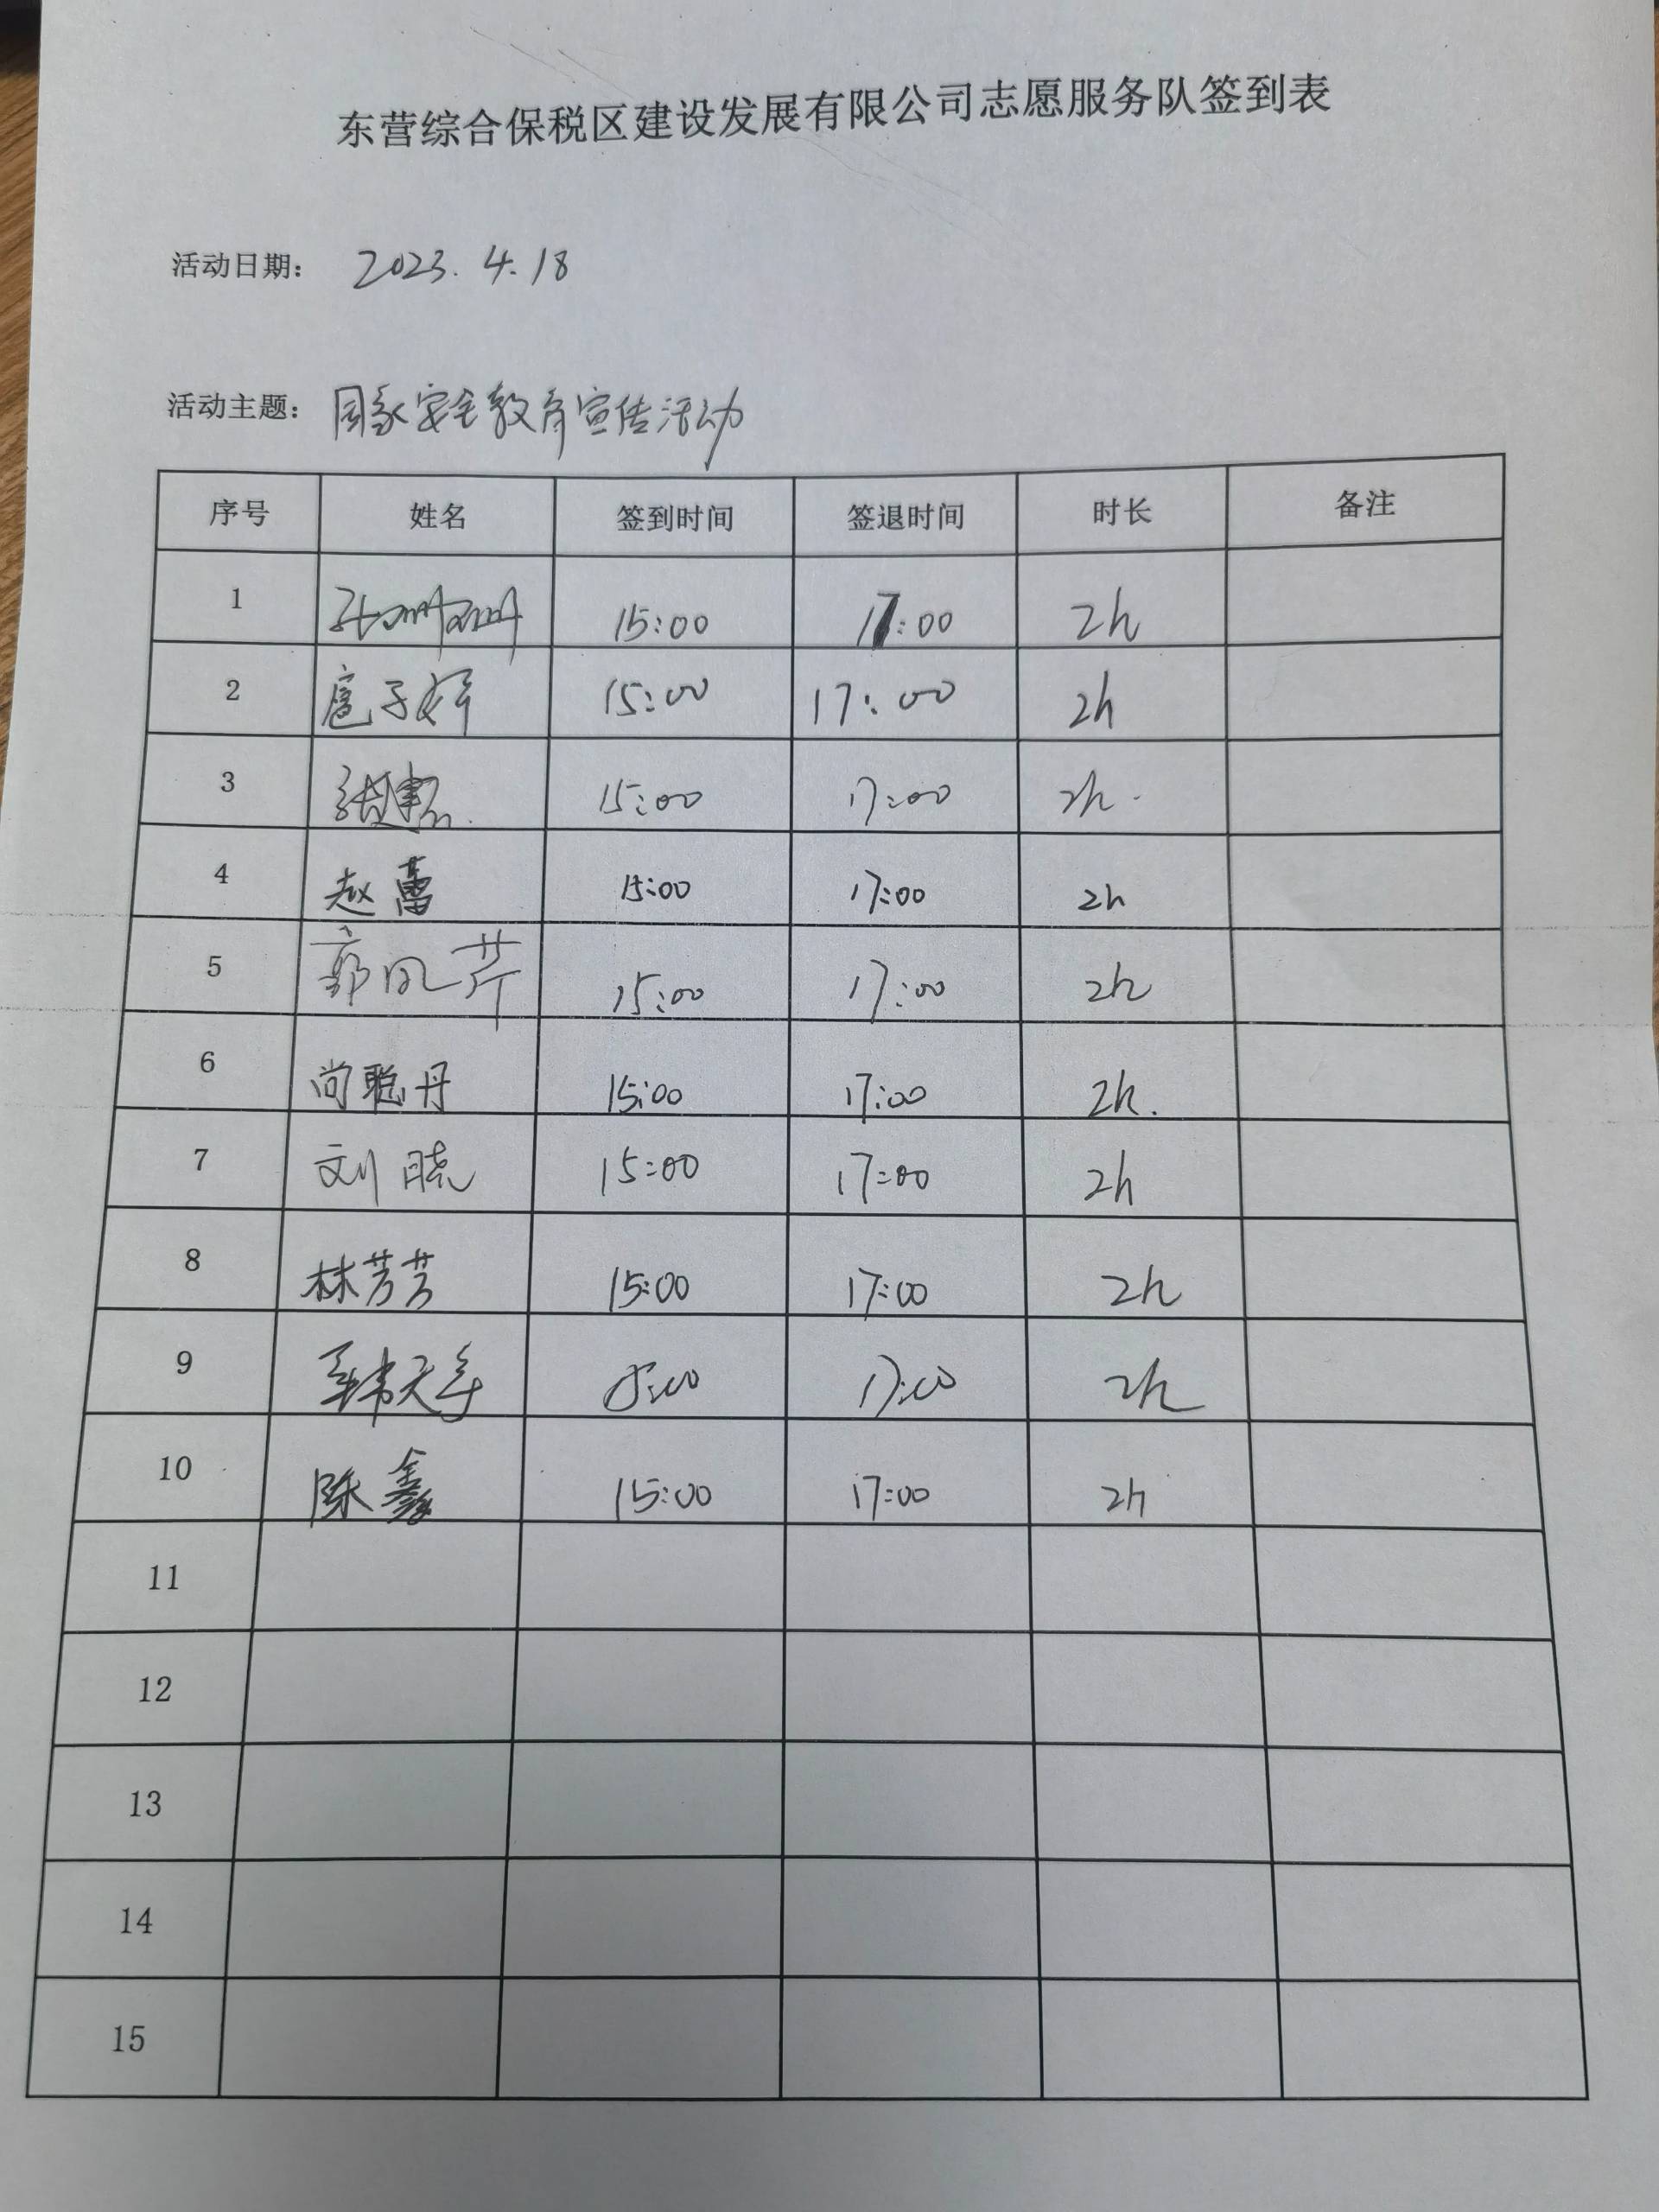 东营综合保税区建设发展有限公司志愿服务队签到表
活动日期： 2023. 4. 18
活动主题： 国家安全教育宣传活动
序号 姓名 签到时间 签退时间 时长 备注
1 15:00 17:00 2h
2 扈子妍 15:00 17:00 2h
3 15:00 17:00 2h.
4 赵蕾 15:00 17:00 2h
5 郭凤芹 15:00 17:00 2h
6 尚聪丹 15:00 17:00 2h.
7 刘晓 15:00 17:00 2h
8 林芳芳 15:00 17:00 2h
9 15:00 17:00 2h
10 陈鑫 15:00 17:00 2h
11
12
13
14
15